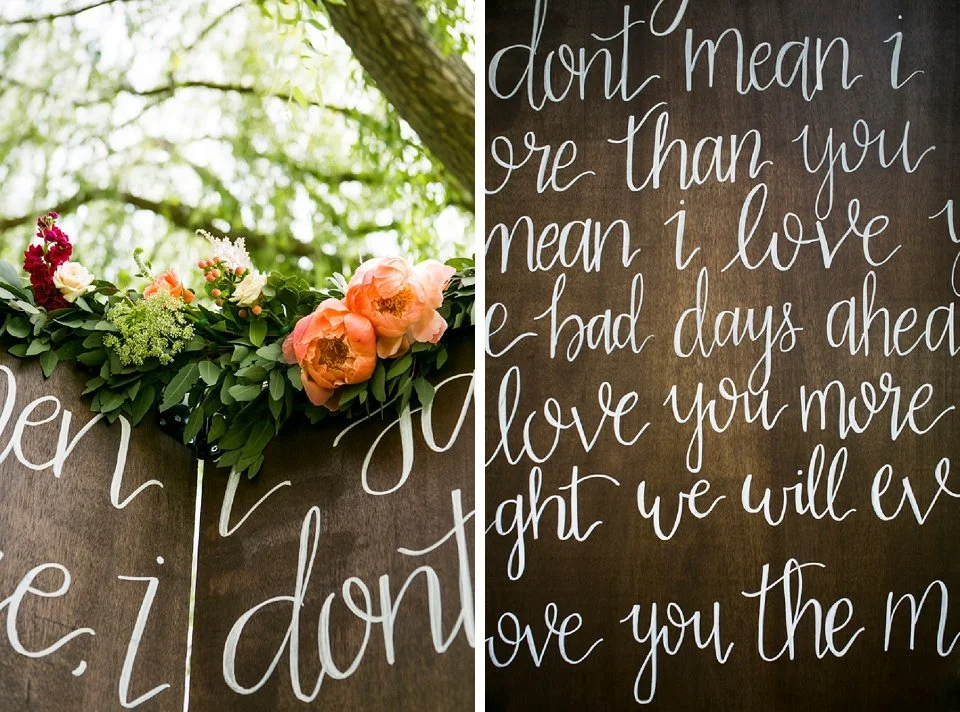 i
e, i dont
dont mean i
ore than you
mean i love y
e bad days ahea
love you more
ght we will ev
ove you the m